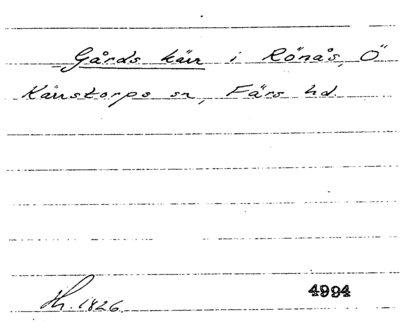 Gårds kärr i Rönås, Ö
Kärrstorps sn, Färs hd.
Hr. 1826. 4994